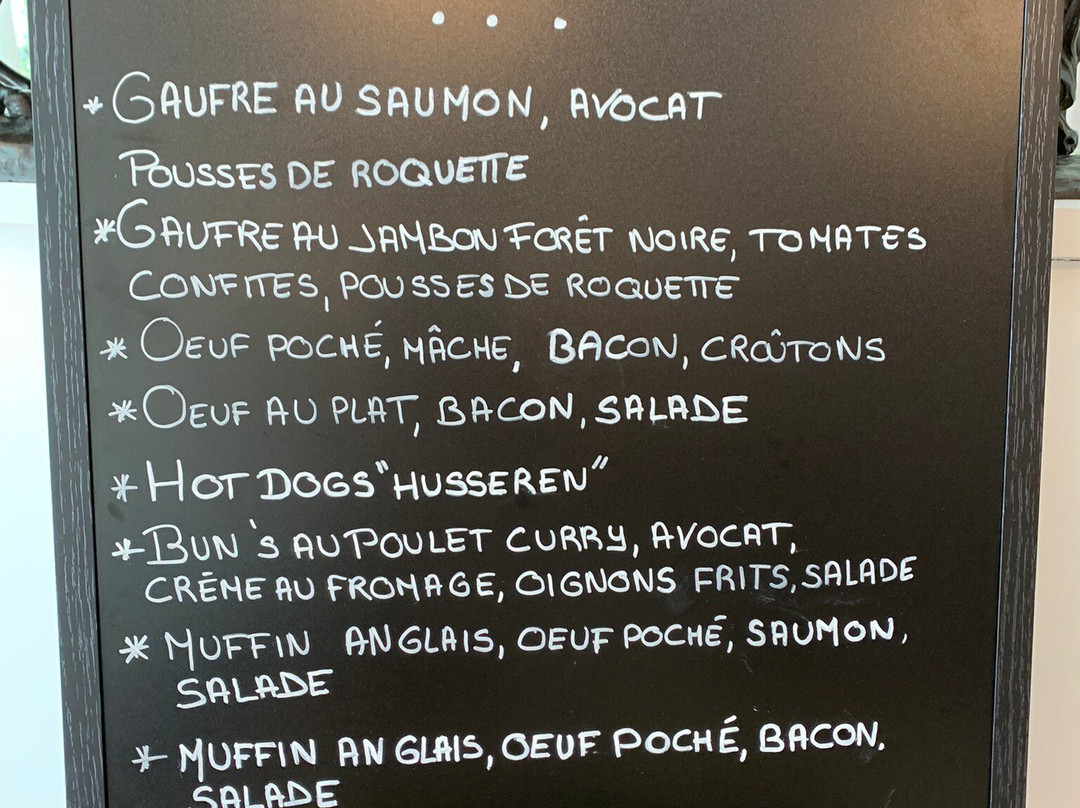 . . .
* GAUFRE AU SAUMON, AVOCAT
POUSSES DE ROQUETTE
* GAUFRE AU JAMBON FORÊT NOIRE, TOMATES
CONFITES, POUSSES DE ROQUETTE
* OEUF POCHÉ, MÂCHE, BACON, CROÛTONS
* OEUF AU PLAT, BACON, SALADE
* HOT DOGS "HUSSEREN"
* BUN'S AU POULET CURRY, AVOCAT,
CRÈME AU FROMAGE, OIGNONS FRITS, SALADE
* MUFFIN ANGLAIS, OEUF POCHÉ, SAUMON,
SALADE
* MUFFIN ANGLAIS, OEUF POCHÉ, BACON.
SALADE